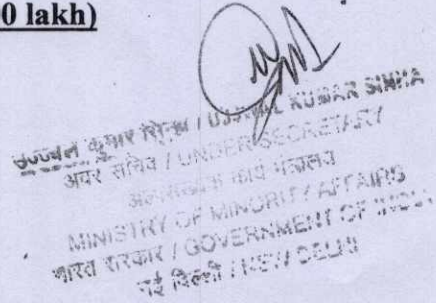 0 lakh)
उज्ज्वल कुमार सिन्हा / UJJWAL KUMAR SINHA
अवर सचिव / UNDER SECRETARY
अल्पसंख्यक कार्य मंत्रालय
MINISTRY OF MINORITY AFFAIRS
भारत सरकार / GOVERNMENT OF INDIA
नई दिल्ली / NEW DELHI